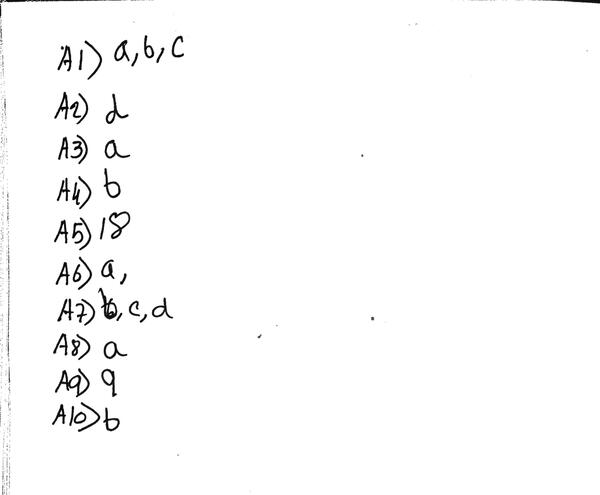 A1) a, b, c
A2) d
A3) a
A4) b
A5) 18
A6) a,
A7) b, c, d
A8) a
A9) 9
A10) b